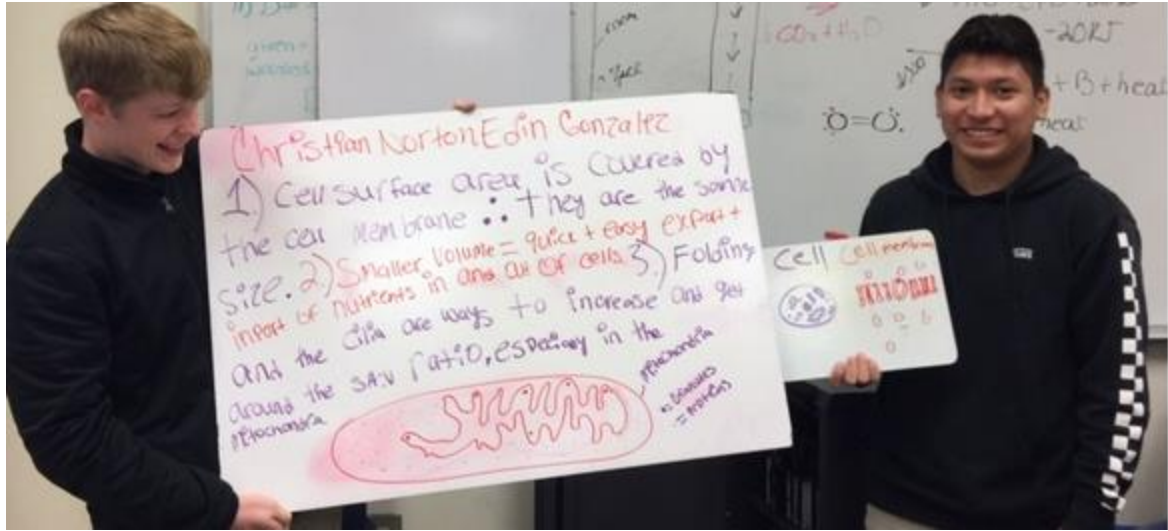 Christian Norton Edin Gonzalez
1) Cell surface area is covered by
the cell membrane ∴ they are the same
size. 2) Smaller volume = quick + easy export +
import of nutrients in and out of cells. 3) Folding
and the cilia are ways to increase and get
around the SA:V ratio, especially in the
mitochondria
mitochondria
= proteins
cell cell membrane
room
CO₂ + H₂O
given =
-20KJ
+ B + heat
heat
O=O